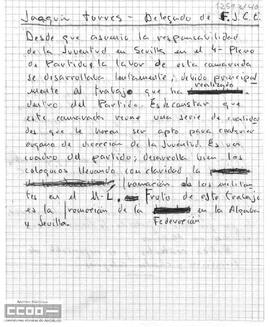 1259x/40
Joaquín Torres - Delegado de F.J.C.E.
Desde que asumio la responsabilidad
de la Juventud en Sevilla en el 4º Pleno
de Partido, la labor de este camarada
se desarrollaba lentamente, debido principal
mente al trabajo que ha realizado
dentro del Partido. Es de constar que
este camarada reune una serie de cualidad
des que le hacen ser apto para cualquier
organo de direccion de la Juventud. Es un
cuadro del partido; desarrolla bien los
coloquios llevando con claridad la
formacion de los militan
tes en el M-L. Fruto de este trabajo
es la formacion de la en la Algaba
y Sevilla. Federación
CCOO